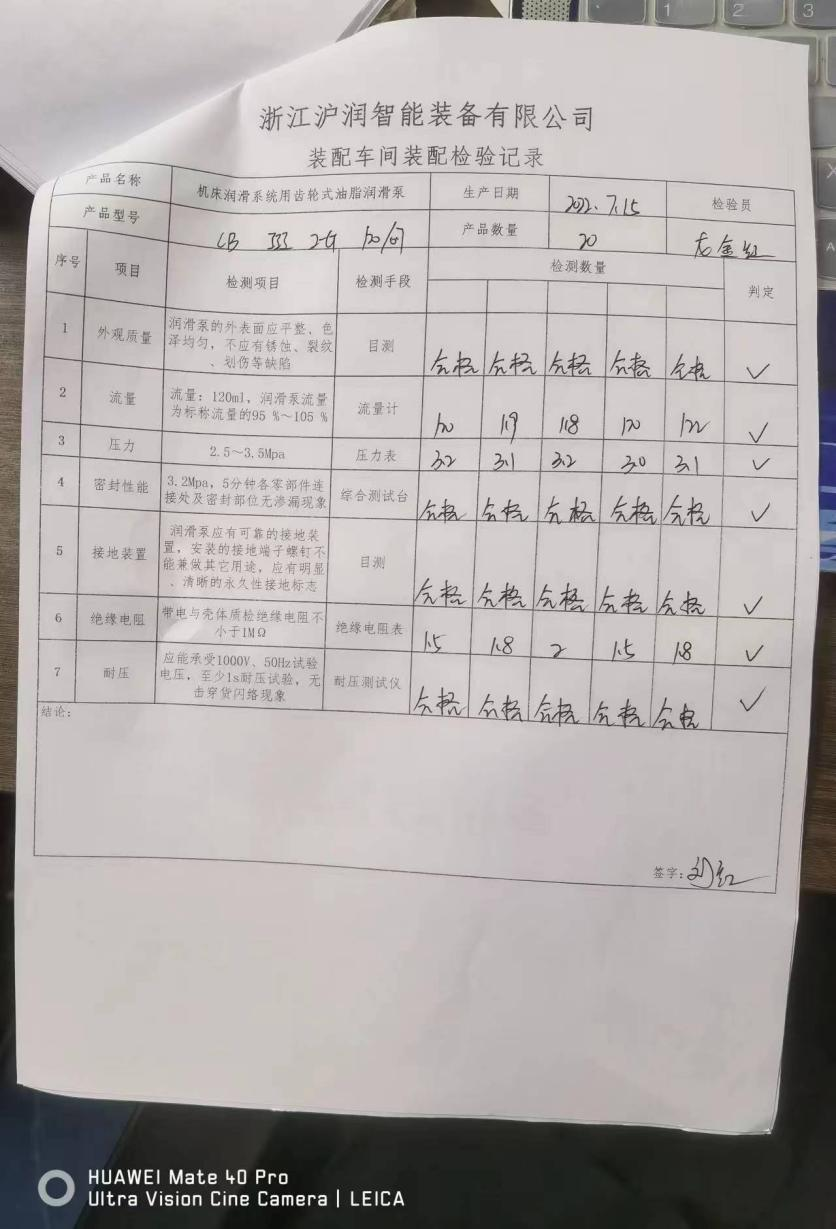 浙江沪润智能装备有限公司
装配车间装配检验记录
产品名称 机床润滑系统用齿轮式油脂润滑泵 生产日期 2022.7.15 检验员
产品型号 产品数量 20
序号 项目 检测项目 检测手段 检测数量 判定
1 外观质量 润滑泵的外表面应平整、色
泽均匀，不应有锈蚀、裂纹
、划伤等缺陷 目测 合格 合格 合格 合格 合格 ✓
2 流量 流量：120ml，润滑泵流量
为标称流量的95 %～105 % 流量计 120 119 118 120 122 ✓
3 压力 2.5～3.5Mpa 压力表 3.2 3.1 3.2 3.0 3.1 ✓
4 密封性能 3.2Mpa，5分钟各零部件连
接处及密封部位无渗漏现象 综合测试台 合格 合格 合格 合格 合格 ✓
5 接地装置 润滑泵应有可靠的接地装
置，安装的接地端子螺钉不
能兼做其它用途，应有明显
、清晰的永久性接地标志 目测 合格 合格 合格 合格 合格 ✓
6 绝缘电阻 带电与壳体质检绝缘电阻不
小于1MΩ 绝缘电阻表 1.5 1.8 2 1.5 1.8 ✓
7 耐压 应能承受1000V、50Hz试验
电压，至少1s耐压试验，无
击穿货闪络现象 耐压测试仪 合格 合格 合格 合格 合格 ✓
结论：
签字：
HUAWEI Mate 40 Pro
Ultra Vision Cine Camera | LEICA